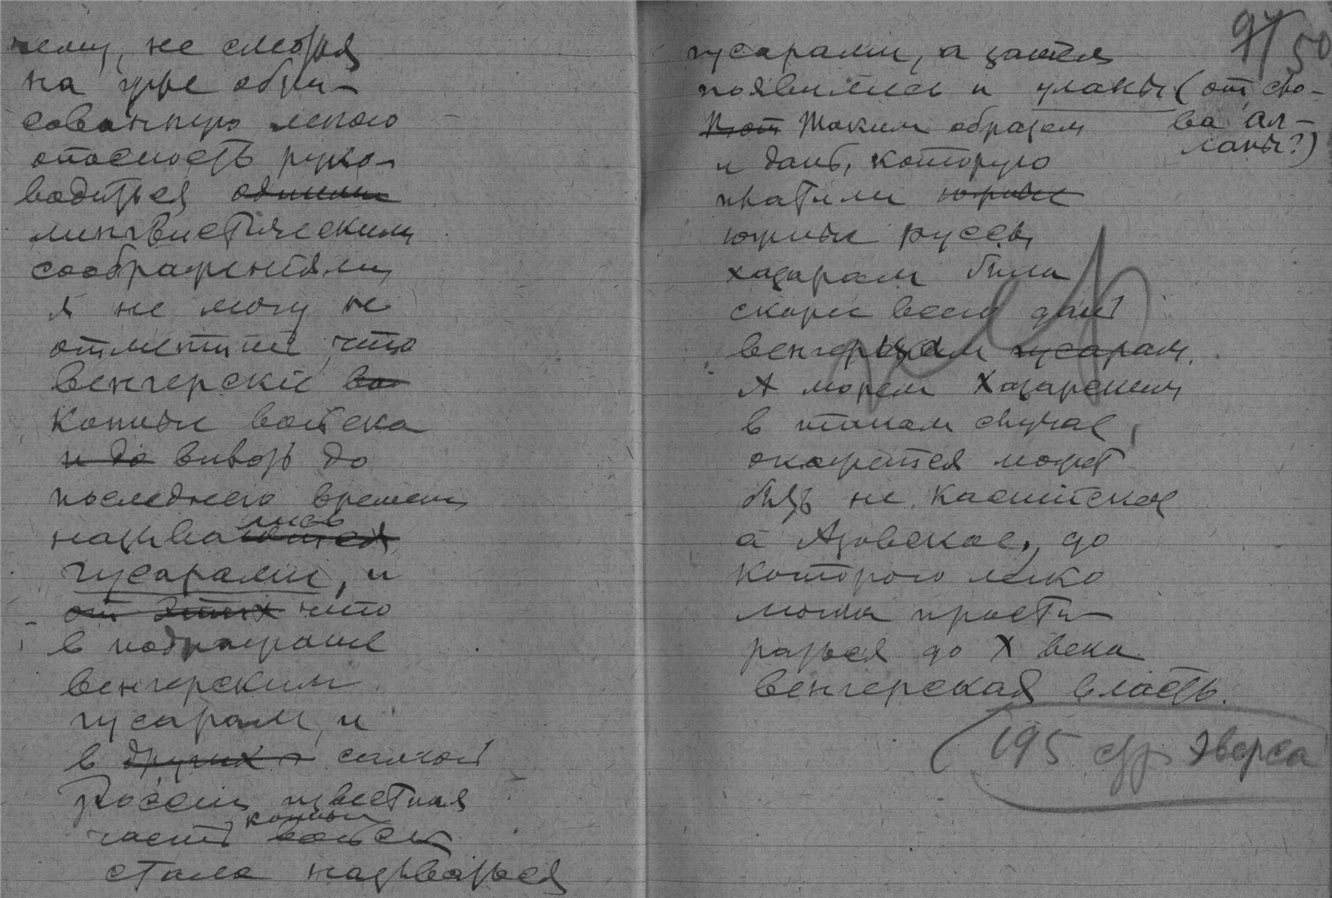 чему, не смотря
на уже обри-
сованную мною
опасность руко-
водиться
лингвистическими
соображениями
я не могу не
отметить что
венгерскіе
конные войска
и до вплоть до
последняго времени
назывались
гусарами, и
от этих что
в подражание
венгерским
гусарам, и
в других самой
России известная
часть конных войск
стала называться
97 50
гусарами, а затем
появились и уланы (от сло-
ва ал-
ланы?)
Таким образом
и дань, которую
платили южные
южные руссы,
хазарам была
скорее всего дань
венгерцам гусарам.
А морем Хазарским
в таком случае,
окажется может
быть не Каспійское
а Азовское, до
которого легко
могла прости-
раться до X века
венгерская власть.
(195 стр. Эверса